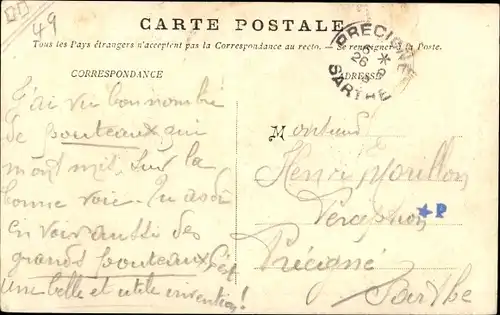 49
CARTE POSTALE
Tous les Pays étrangers n'acceptent pas la Correspondance au recto. — Se renseigner à la Poste.
CORRESPONDANCE
ADRESSE
PRECIGNÉ
26
SARTHE
J'ai vu bon nombre
de pouteaux qui
m'ont mit sur la
bonne voie. Tu as dû
en voir aussi des
grands pouteaux. C'est
une belle et utile invention!
Monsieur
Henri
Perception
P
Précigné
Sarthe